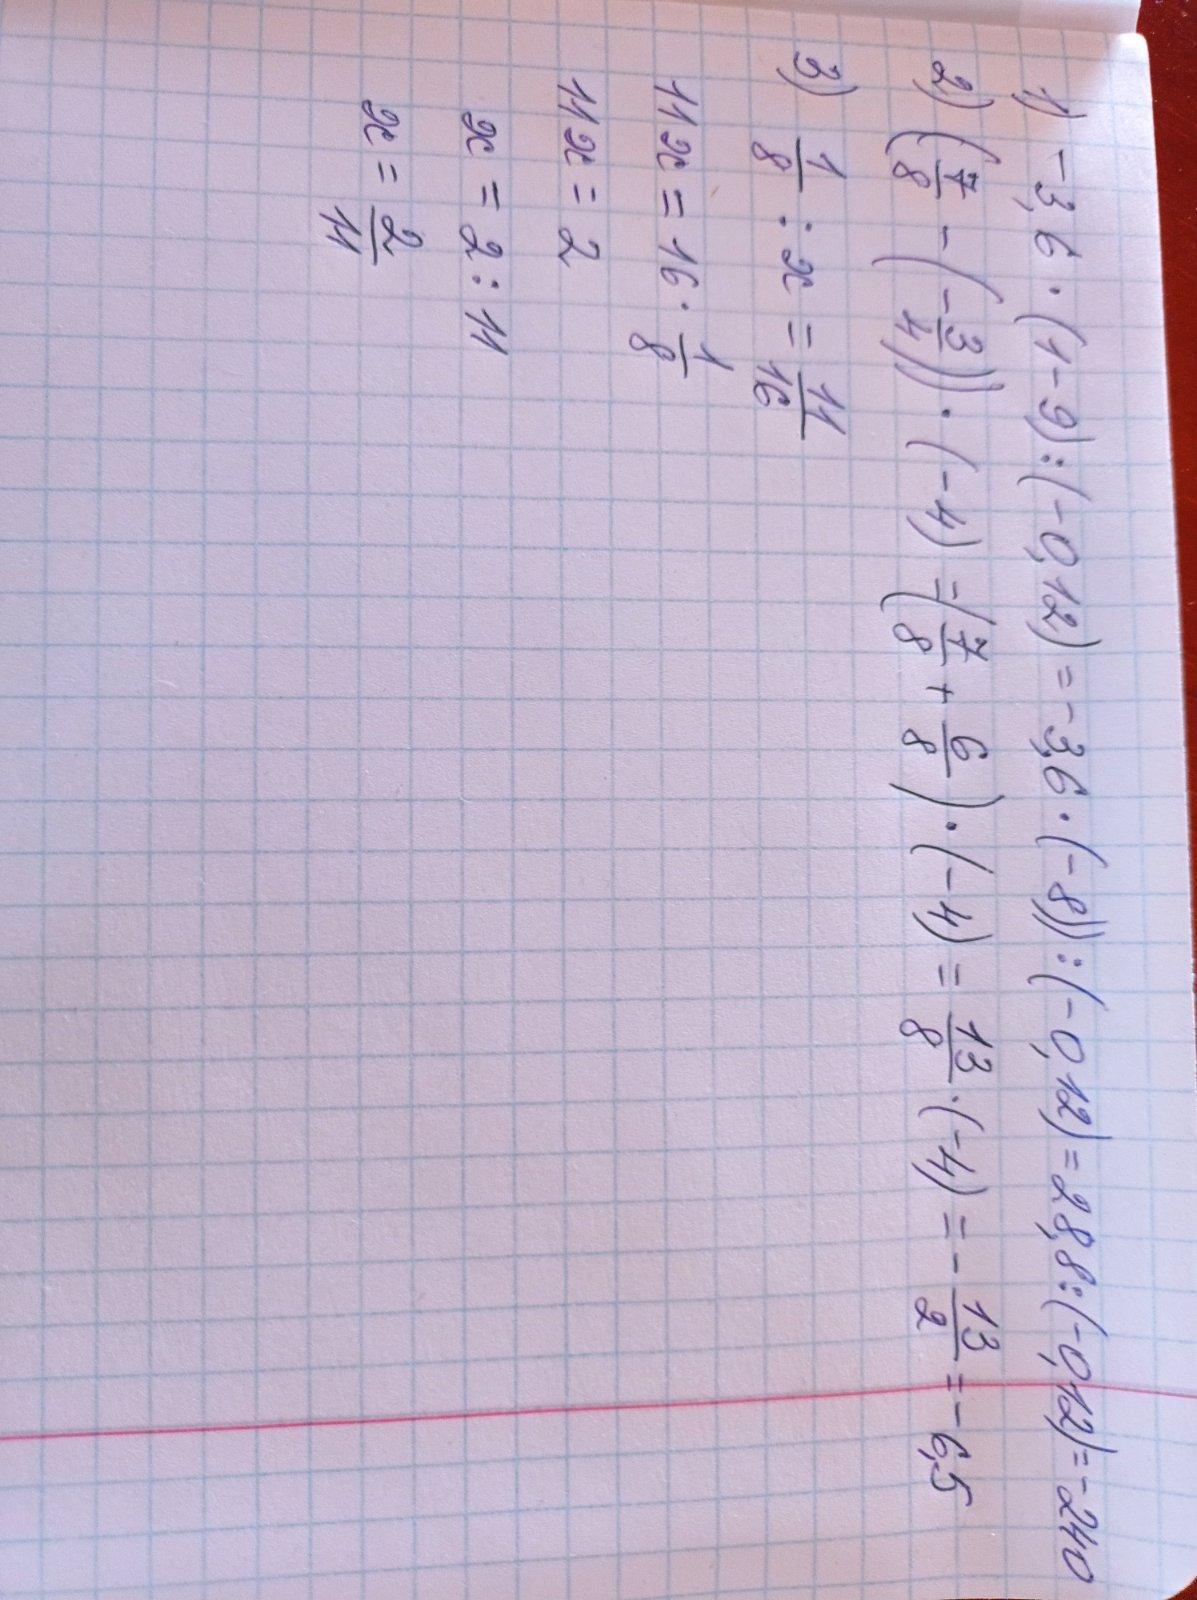 1) -3,6 · (1-9):(-0,12) = -3,6 · (-8)):(-0,12) = 28,8:(-0,12) = -240
2) (7/8 - (-3/4))) · (-4) = (7/8 + 6/8) · (-4) = 13/8 · (-4) = -13/2 = -6,5
3) 1/8 : x = 11/16
11x = 16 · 1/8
11x = 2
x = 2 : 11
x = 2/11